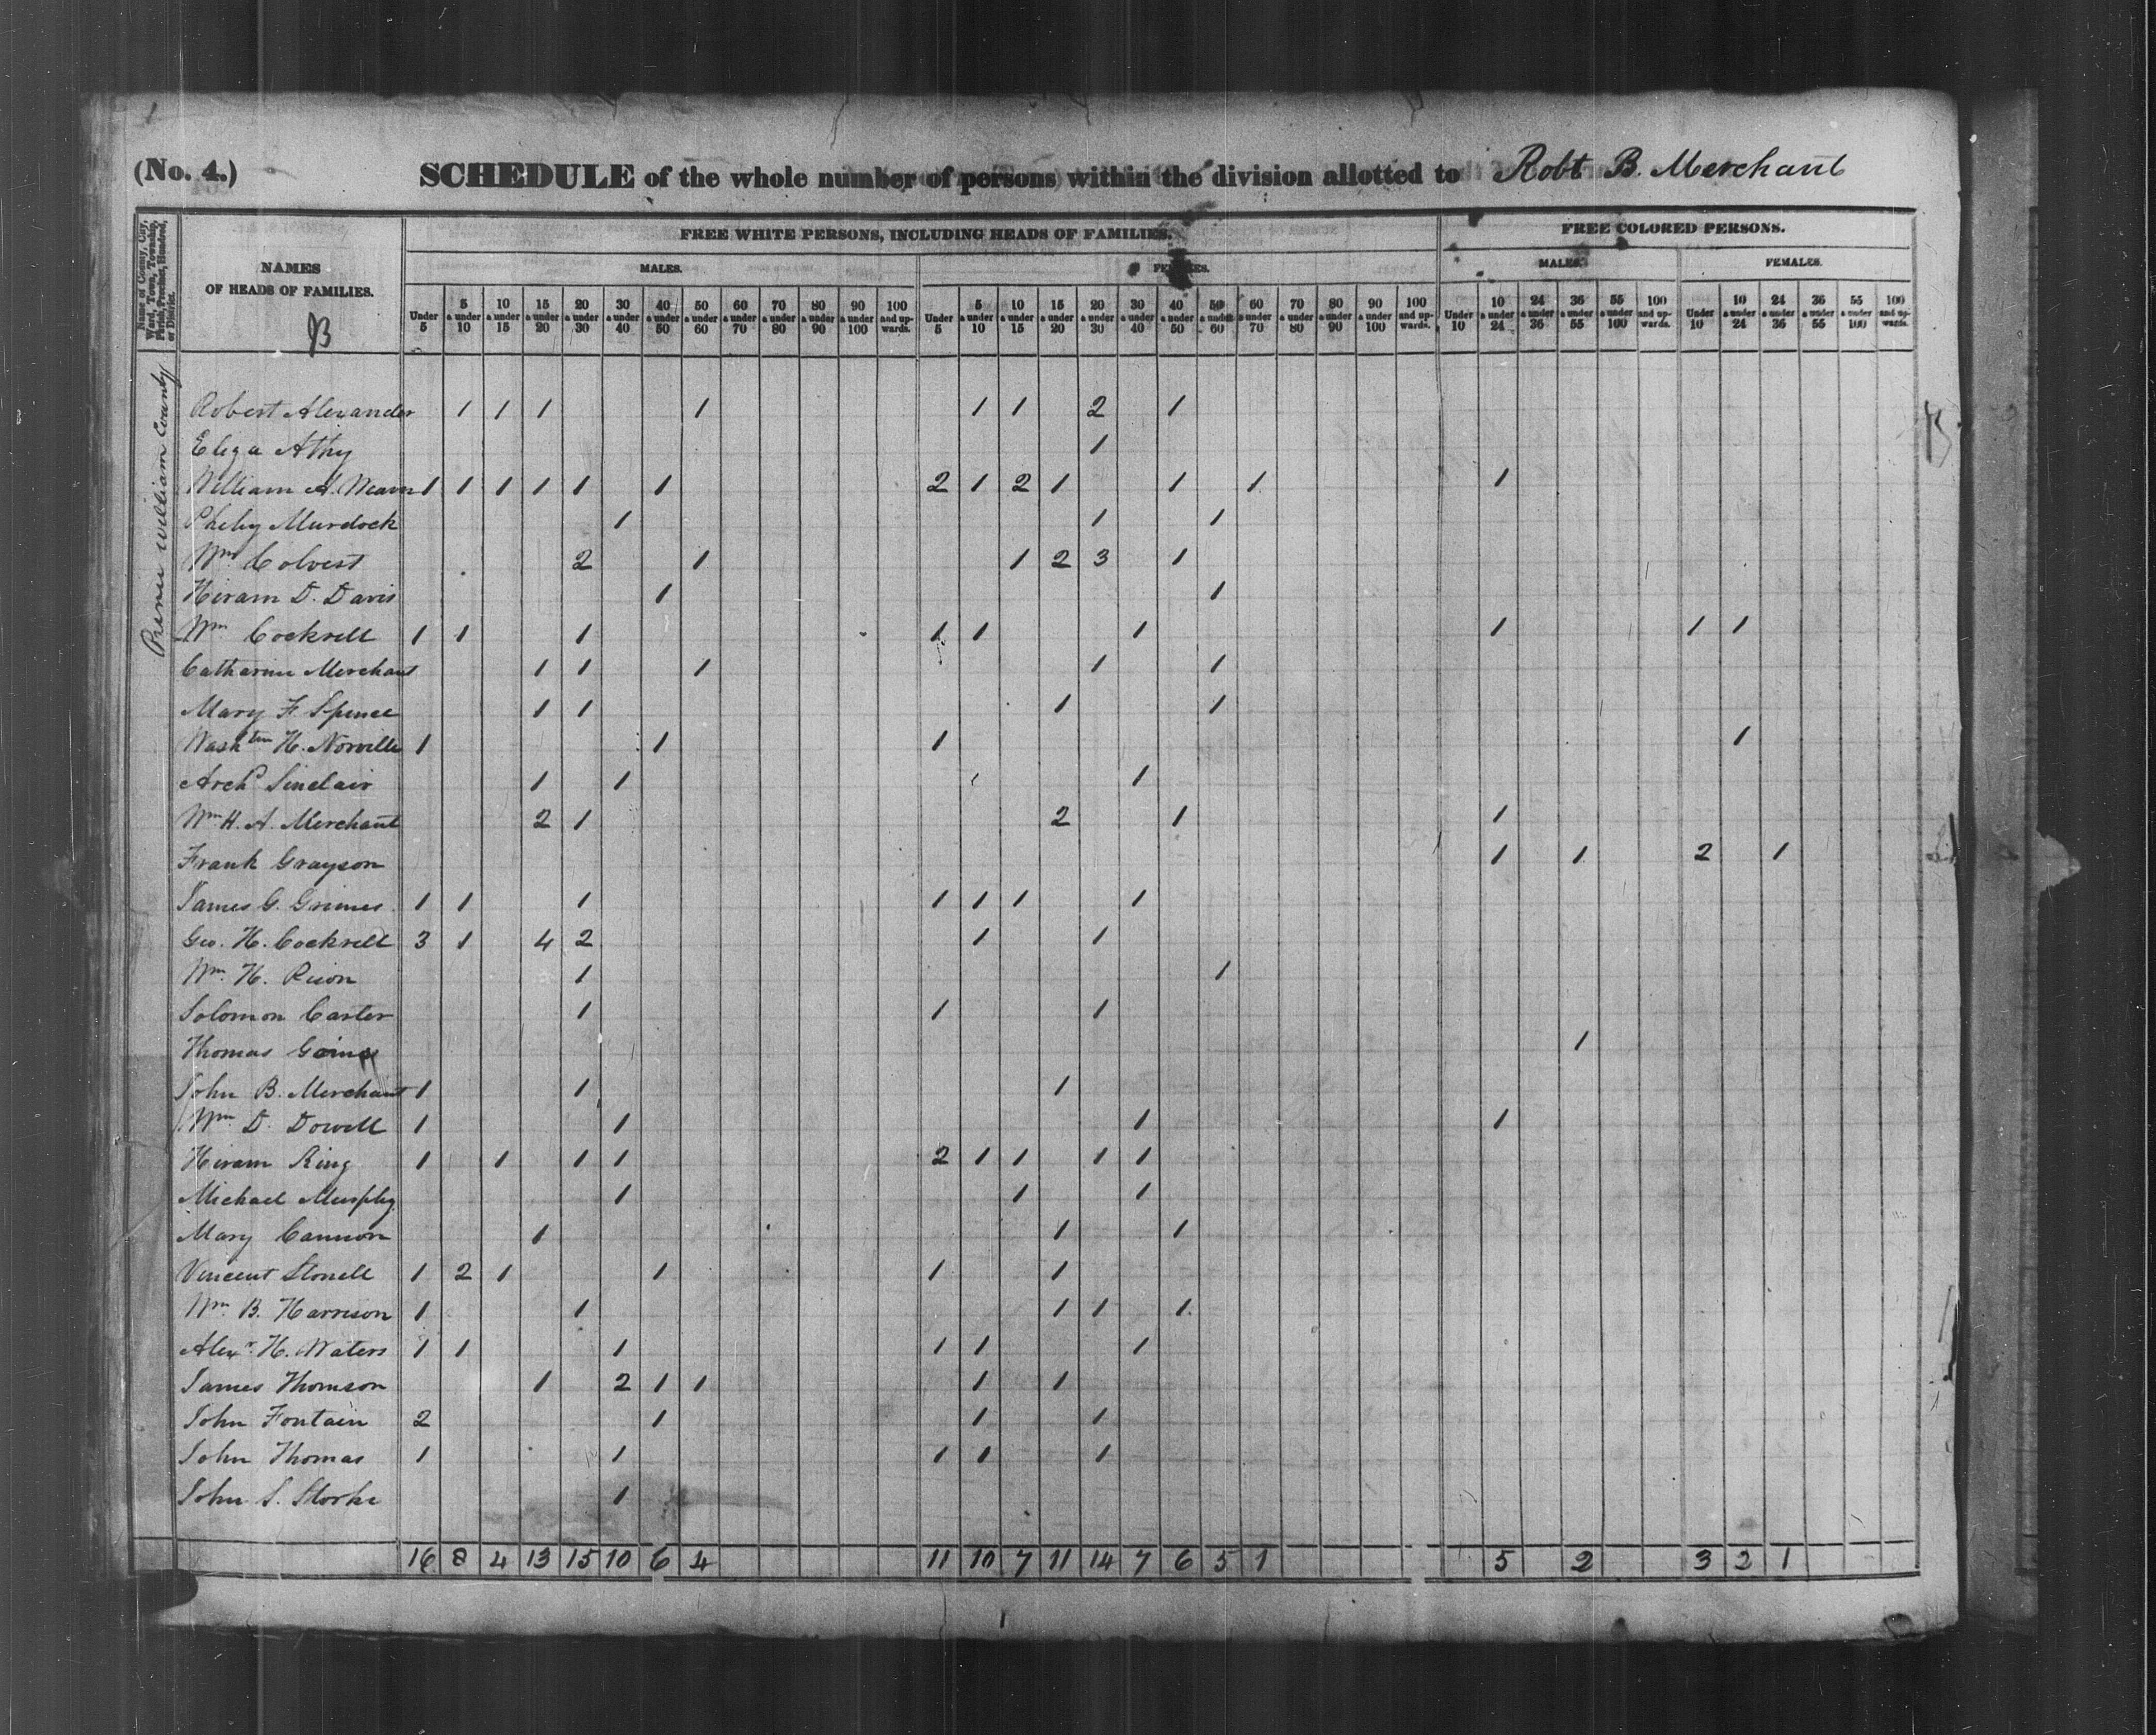 (No. 4.) SCHEDULE of the whole number of persons within the division allotted to Robt B. Merchant
Name of County, City, Ward, Town, Township, Parish, Precinct, Hundred, or District.
NAMES OF HEADS OF FAMILIES.
FREE WHITE PERSONS, INCLUDING HEADS OF FAMILIES. FREE COLORED PERSONS.
MALES. FEMALES. MALES. FEMALES.
Under 5 | 5 & under 10 | 10 & under 15 | 15 & under 20 | 20 & under 30 | 30 & under 40 | 40 & under 50 | 50 & under 60 | 60 & under 70 | 70 & under 80 | 80 & under 90 | 90 & under 100 | 100 and upwards. | Under 5 | 5 & under 10 | 10 & under 15 | 15 & under 20 | 20 & under 30 | 30 & under 40 | 40 & under 50 | 50 & under 60 | 60 & under 70 | 70 & under 80 | 80 & under 90 | 90 & under 100 | 100 and upwards. | Under 10 | 10 & under 24 | 24 & under 36 | 36 & under 55 | 55 & under 100 | 100 and upwards. | Under 10 | 10 & under 24 | 24 & under 36 | 36 & under 55 | 55 & under 100 | 100 and upwards.
Prince William County
Robert Alexander 1 1 1 1 1 1 2 1
Eliza Athy 1
William A. 1 1 1 1 1 1 2 1 2 1 1 1 1
Pheby Murdock 1 1 1
Wm Colvert 2 1 1 2 3 1
Hiram D. Davis 1 1
Wm Cockrell 1 1 1 1 1 1 1 1 1
Catharine Merchant 1 1 1 1 1
Mary F. Spence 1 1 1 1
Washton H. Norville 1 1 1 1
Archd Sinclair 1 1 1
Wm H. A. Merchant 2 1 2 1 1
Frank Grayson 1 1 2 1
James G. Grimes 1 1 1 1 1 1 1
Geo. H. Cockrell 3 1 4 2 1 1
Wm. H. 1 1
Solomon Carter 1 1 1
Thomas 1
John B. Merchant 1 1 1
Wm. D. Dowell 1 1 1 1
Hiram King 1 1 1 1 2 1 1 1 1
Michael Murphy 1 1 1
Mary Cannon 1 1 1
Vincent Stonell 1 2 1 1 1 1
Wm. B. Harrison 1 1 1 1 1
Alexr. H. Waters 1 1 1 1 1 1
James Thomson 1 2 1 1 1 1
John Fontain 2 1 1 1
John Thomas 1 1 1 1 1
John S. Storke 1
16 8 4 13 15 10 6 4 11 10 7 11 14 7 6 5 1 5 2 3 2 1